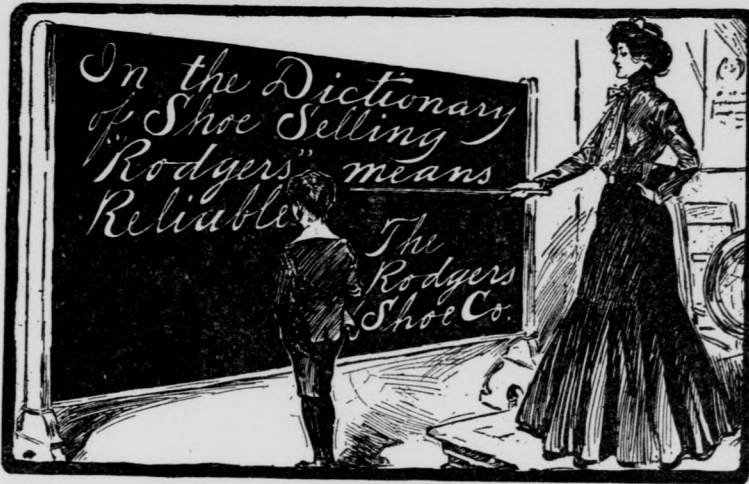 In the Dictionary
of Shoe Selling
"Rodgers" means
Reliable
The
Rodgers
Shoe Co.